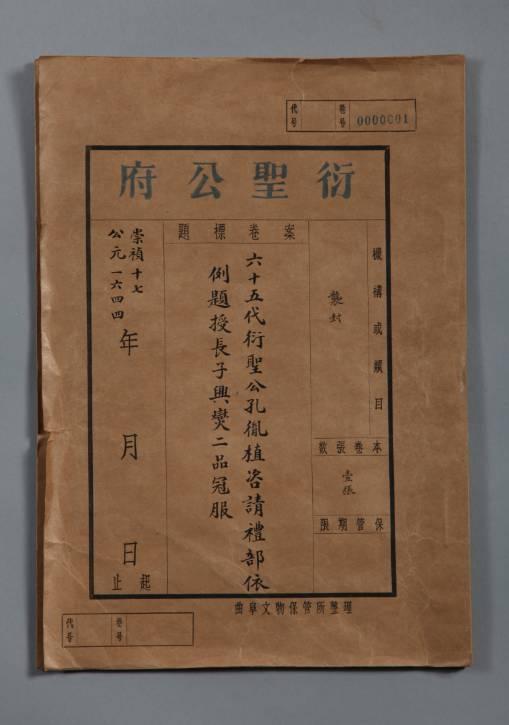 代号
卷号 0000001
衍聖公府
機構或類目
襲封
本卷張数
壹張
保管期限
案卷標題
六十五代衍聖公孔胤植咨請禮部依
例題授長子興燮二品冠服
崇禎十七
公元一六四四年 月 日
起止
曲阜文物保管所整理
代号
卷号